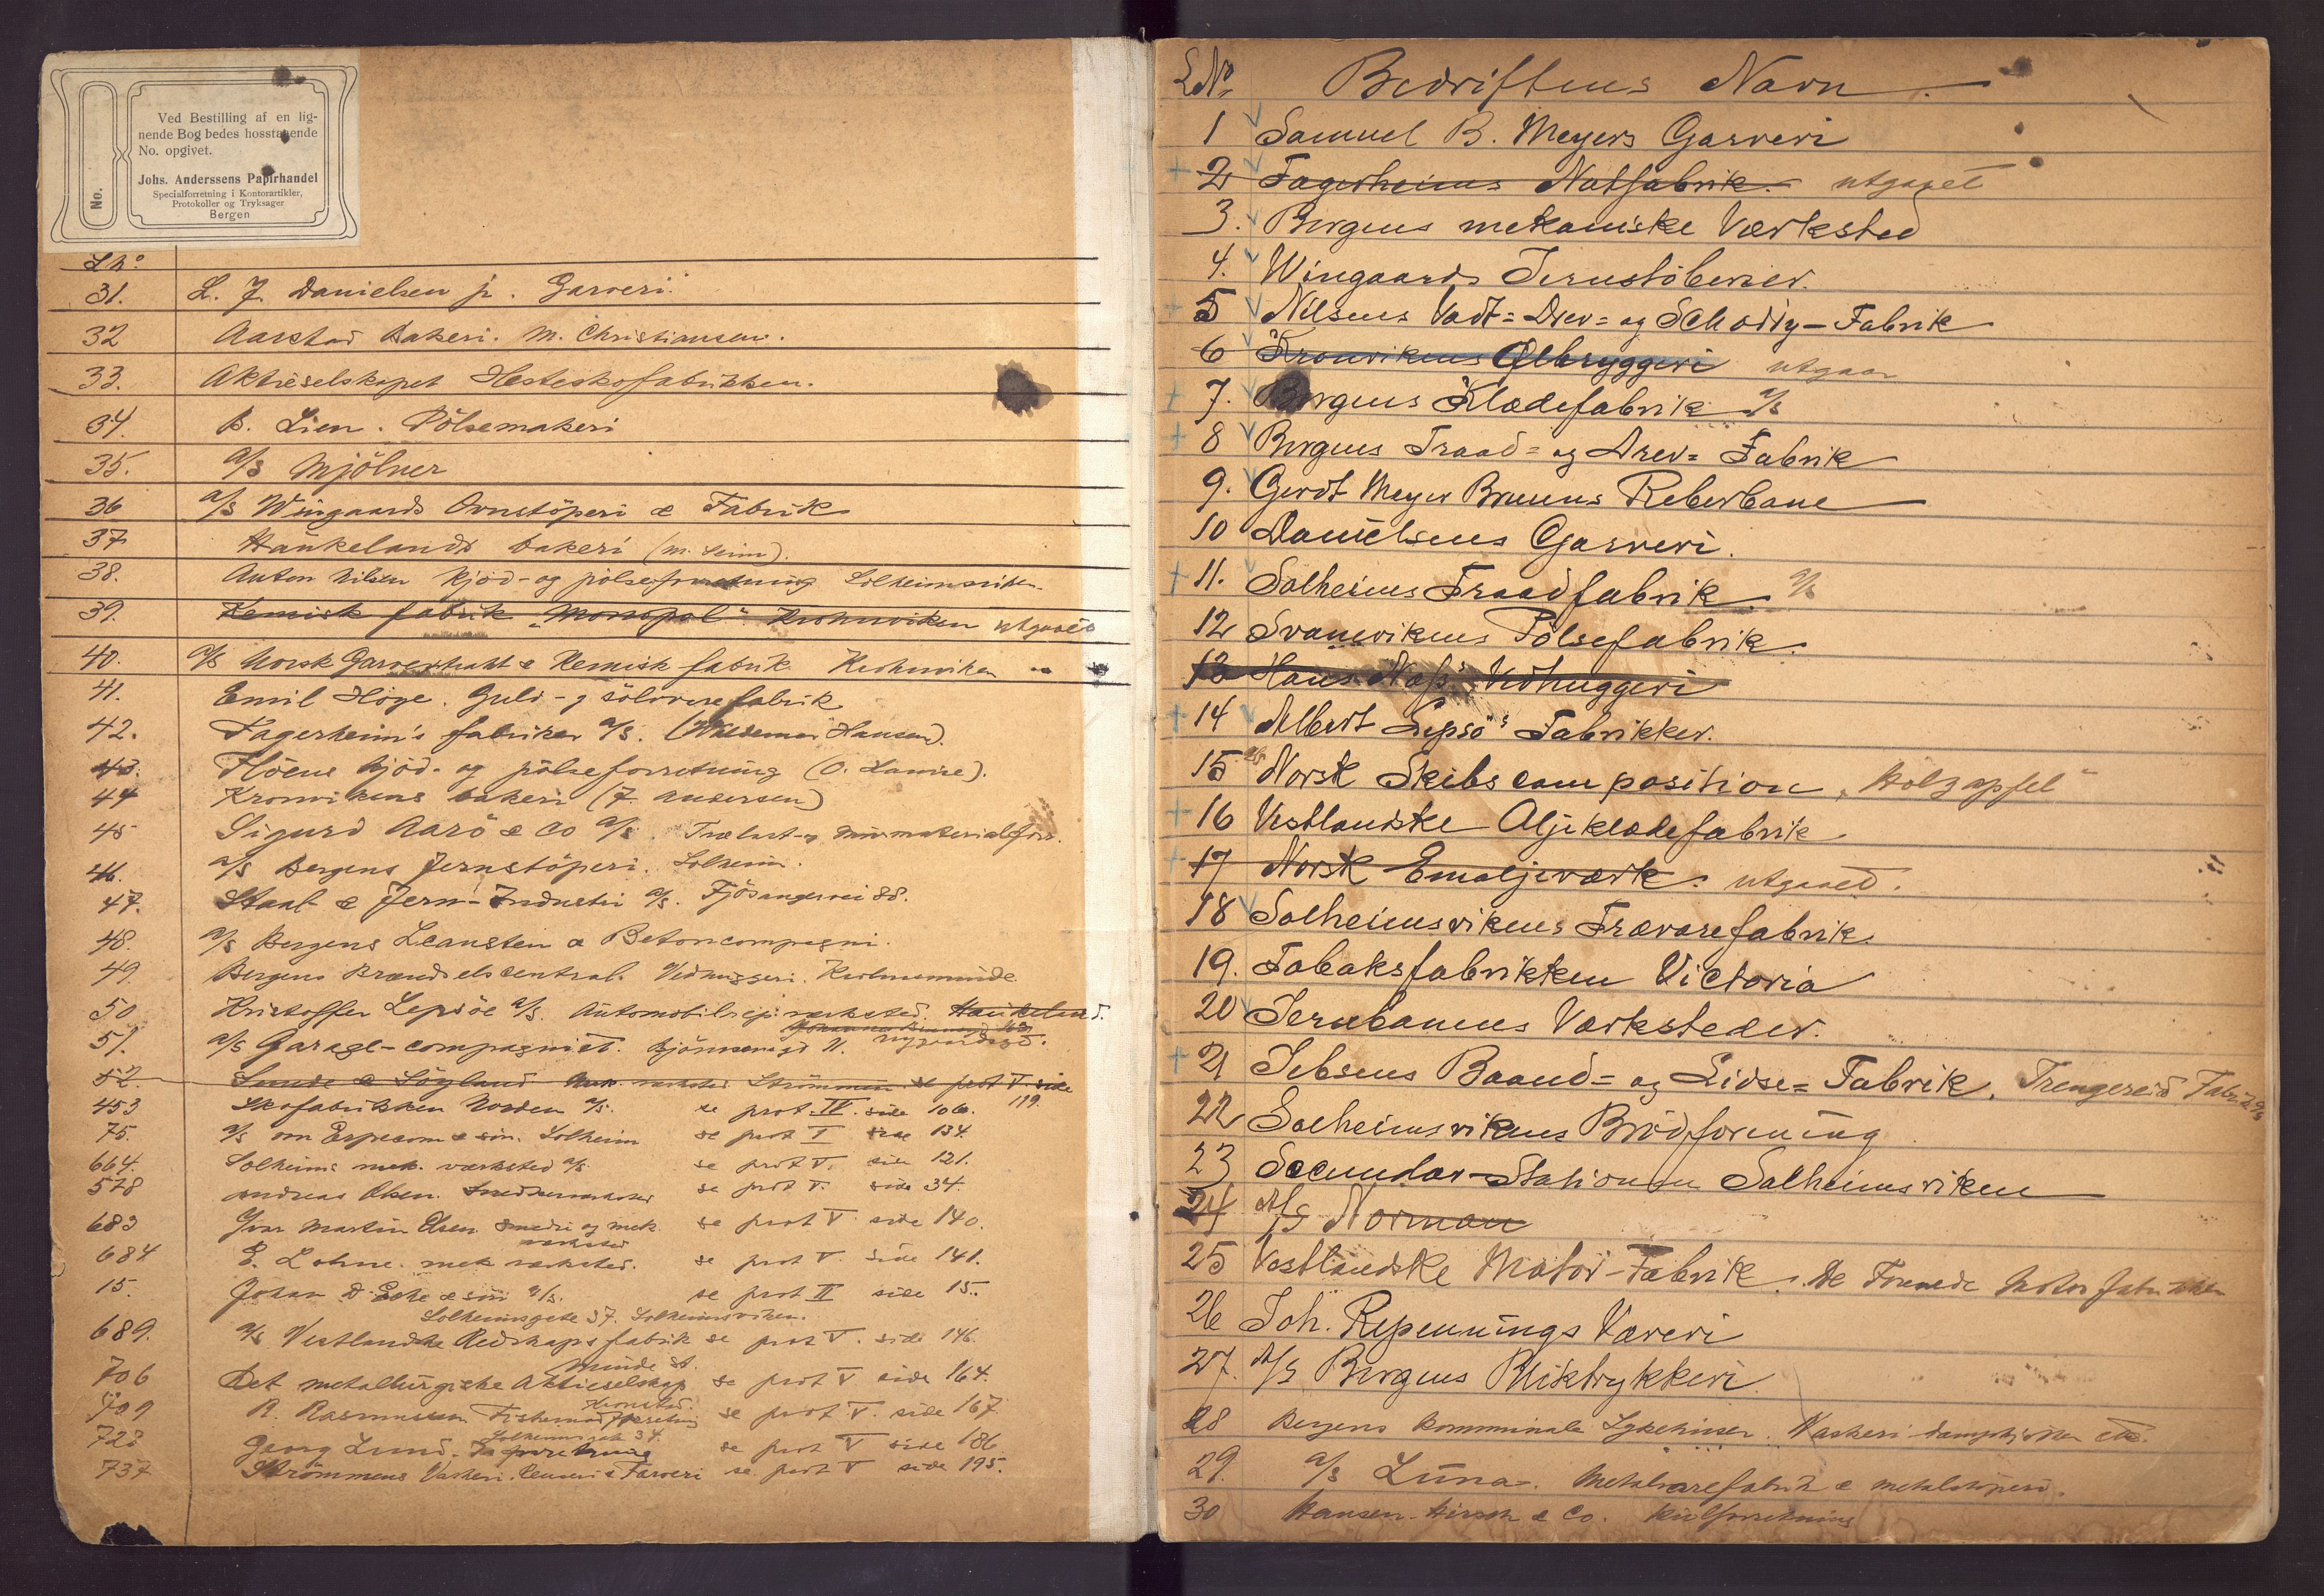 Ved Bestilling af en lig-
nende Bog bedes hosstaaende
No. opgivet.
Johs. Anderssens Papirhandel
Specialforretning i Kontorartikler,
Protokoller og Tryksager
Bergen
No.
L No
31. L. J. Danielsen jr. Garveri.
32 Aarstad Bakeri. M. Christiansen.
33. Aktieselskapet Hesteskofabrikken.
34. B. Lien. Pölsemakeri
35. a/s Mjölner
36 a/s Wingaards Ovnstöperi & Fabrik
37 Haukelands bakeri (M. Seim).
38. Anton Nilsen Kjöd- og pölseforretning Solheimsviken
39. Kemisk fabrik "Monopol" Kronviken utgaaet
40. a/s Norsk Garverextrakt & Kemisk fabrik Kronviken
41. Emil Höge. Guld- og sölvvarefabrik
42. Fagerheim's fabriker a/s. (Waldemar Hansen).
43. Flöens kjöd- og pölseforretning (O. Hamre).
44 Kronvikens bakeri (J. Andersen)
45 Sigurd Aarö & Co a/s. Trælast- og Murmaterialforr.
46. a/s Bergens Jernstöperi. Solheim.
47. Staal & Jern-Industri a/s. Fjösangervei 88.
48. a/s Bergens Leansten & Betoncompagni.
49. Bergens Brændselscentral. Vedhuggeri. Kronsminde.
50 Kristoffer Lepsöe a/s. Automobilrep. verksted. Haukeland.
51. a/s Garage-compagniet. Björnsonsgt 11. Nygaardsgt.
52. Sunde & Söyland Mek. verksted Strömmen se prot V. side 119.
453 Skofabrikken Norden a/s. se prot. IV. side 106.
75. a/s Especom & sön. Solheim se prot I side 134.
664. Solheims mek. værksted a/s se prot V. side 121.
578 Andreas Olsen. Snedkerverksted se prot V. side 34.
683 Ivar Martin Olsen smedri og mek. verksted se prot V side 140.
684 E. Lohne. mek verksted. se prot V side 141.
15. Johan D. & sön a/s. se prot II side 15.
Solheimsgate 37. Solheimsviken.
689. a/s Vestlandske Redskapsfabrik se prot V. side 146.
Minde st.
706 Det metallurgiske Aktieselskap se prot V side 164.
Kronstad.
709 R. Rasmussen Fiskematforretning se prot V. side 167
Solheimsgate 34.
728 Georg Lund. forretning se prot V side 186
737 Strömmens Vaskeri Renseri & Farveri se prot V side 195.
L No. Bedriftens Navn.
1 Samuel B. Meyers Garveri
2 Fagerheims Notfabrik. utgaaet
3. Bergens mekaniske Værksted
4. Wingaards Jernstöberier.
5 Nilsens Vadt- Drev- og Schoddy-Fabrik
6 Kronvikens Ølbryggeri utgaar
7. Bergens Klædefabrik a/s
8 Bergens Traad- og Drev- Fabrik
9. Gerdt Meyer Bruuns Reberbane
10 Danielsens Garveri.
11. Solheims Traadfabrik. a/s
12 Svanevikens Pölsefabrik.
13 Hans Næss' Vedhuggeri
14 Albert Lepsö's Fabrikker.
15 a/s Norsk Skibscomposition "Holzapfel"
16 Vestlandske Oljeklædefabrik
17 Norsk Emaljeværk. utgaaed.
18 Solheimsvikens Trævarefabrik.
19. Tobaksfabrikken Victoria
20 Jernbanens Værksteder.
21 Jebsens Baand- og Lidse- Fabrik. Trengereid Fabr. a/s
22 Solheimsvikens Brödforening
23 Secundær-Stationen Solheimsviken
24 A/S Norman
25 Vestlandske Motor-Fabrik. De Forenede Motorfabrikker
26 Joh. Repennings Væveri
27. A/S Bergens Bliktrykkeri.
28 Bergens Kommunale Sykehuser. Vaskeri dampkjökken etc.
29. a/s Luna. Metalvarefabrik & metalstöperi.
30 Hansen-Hirsch & Co. Kulforretning